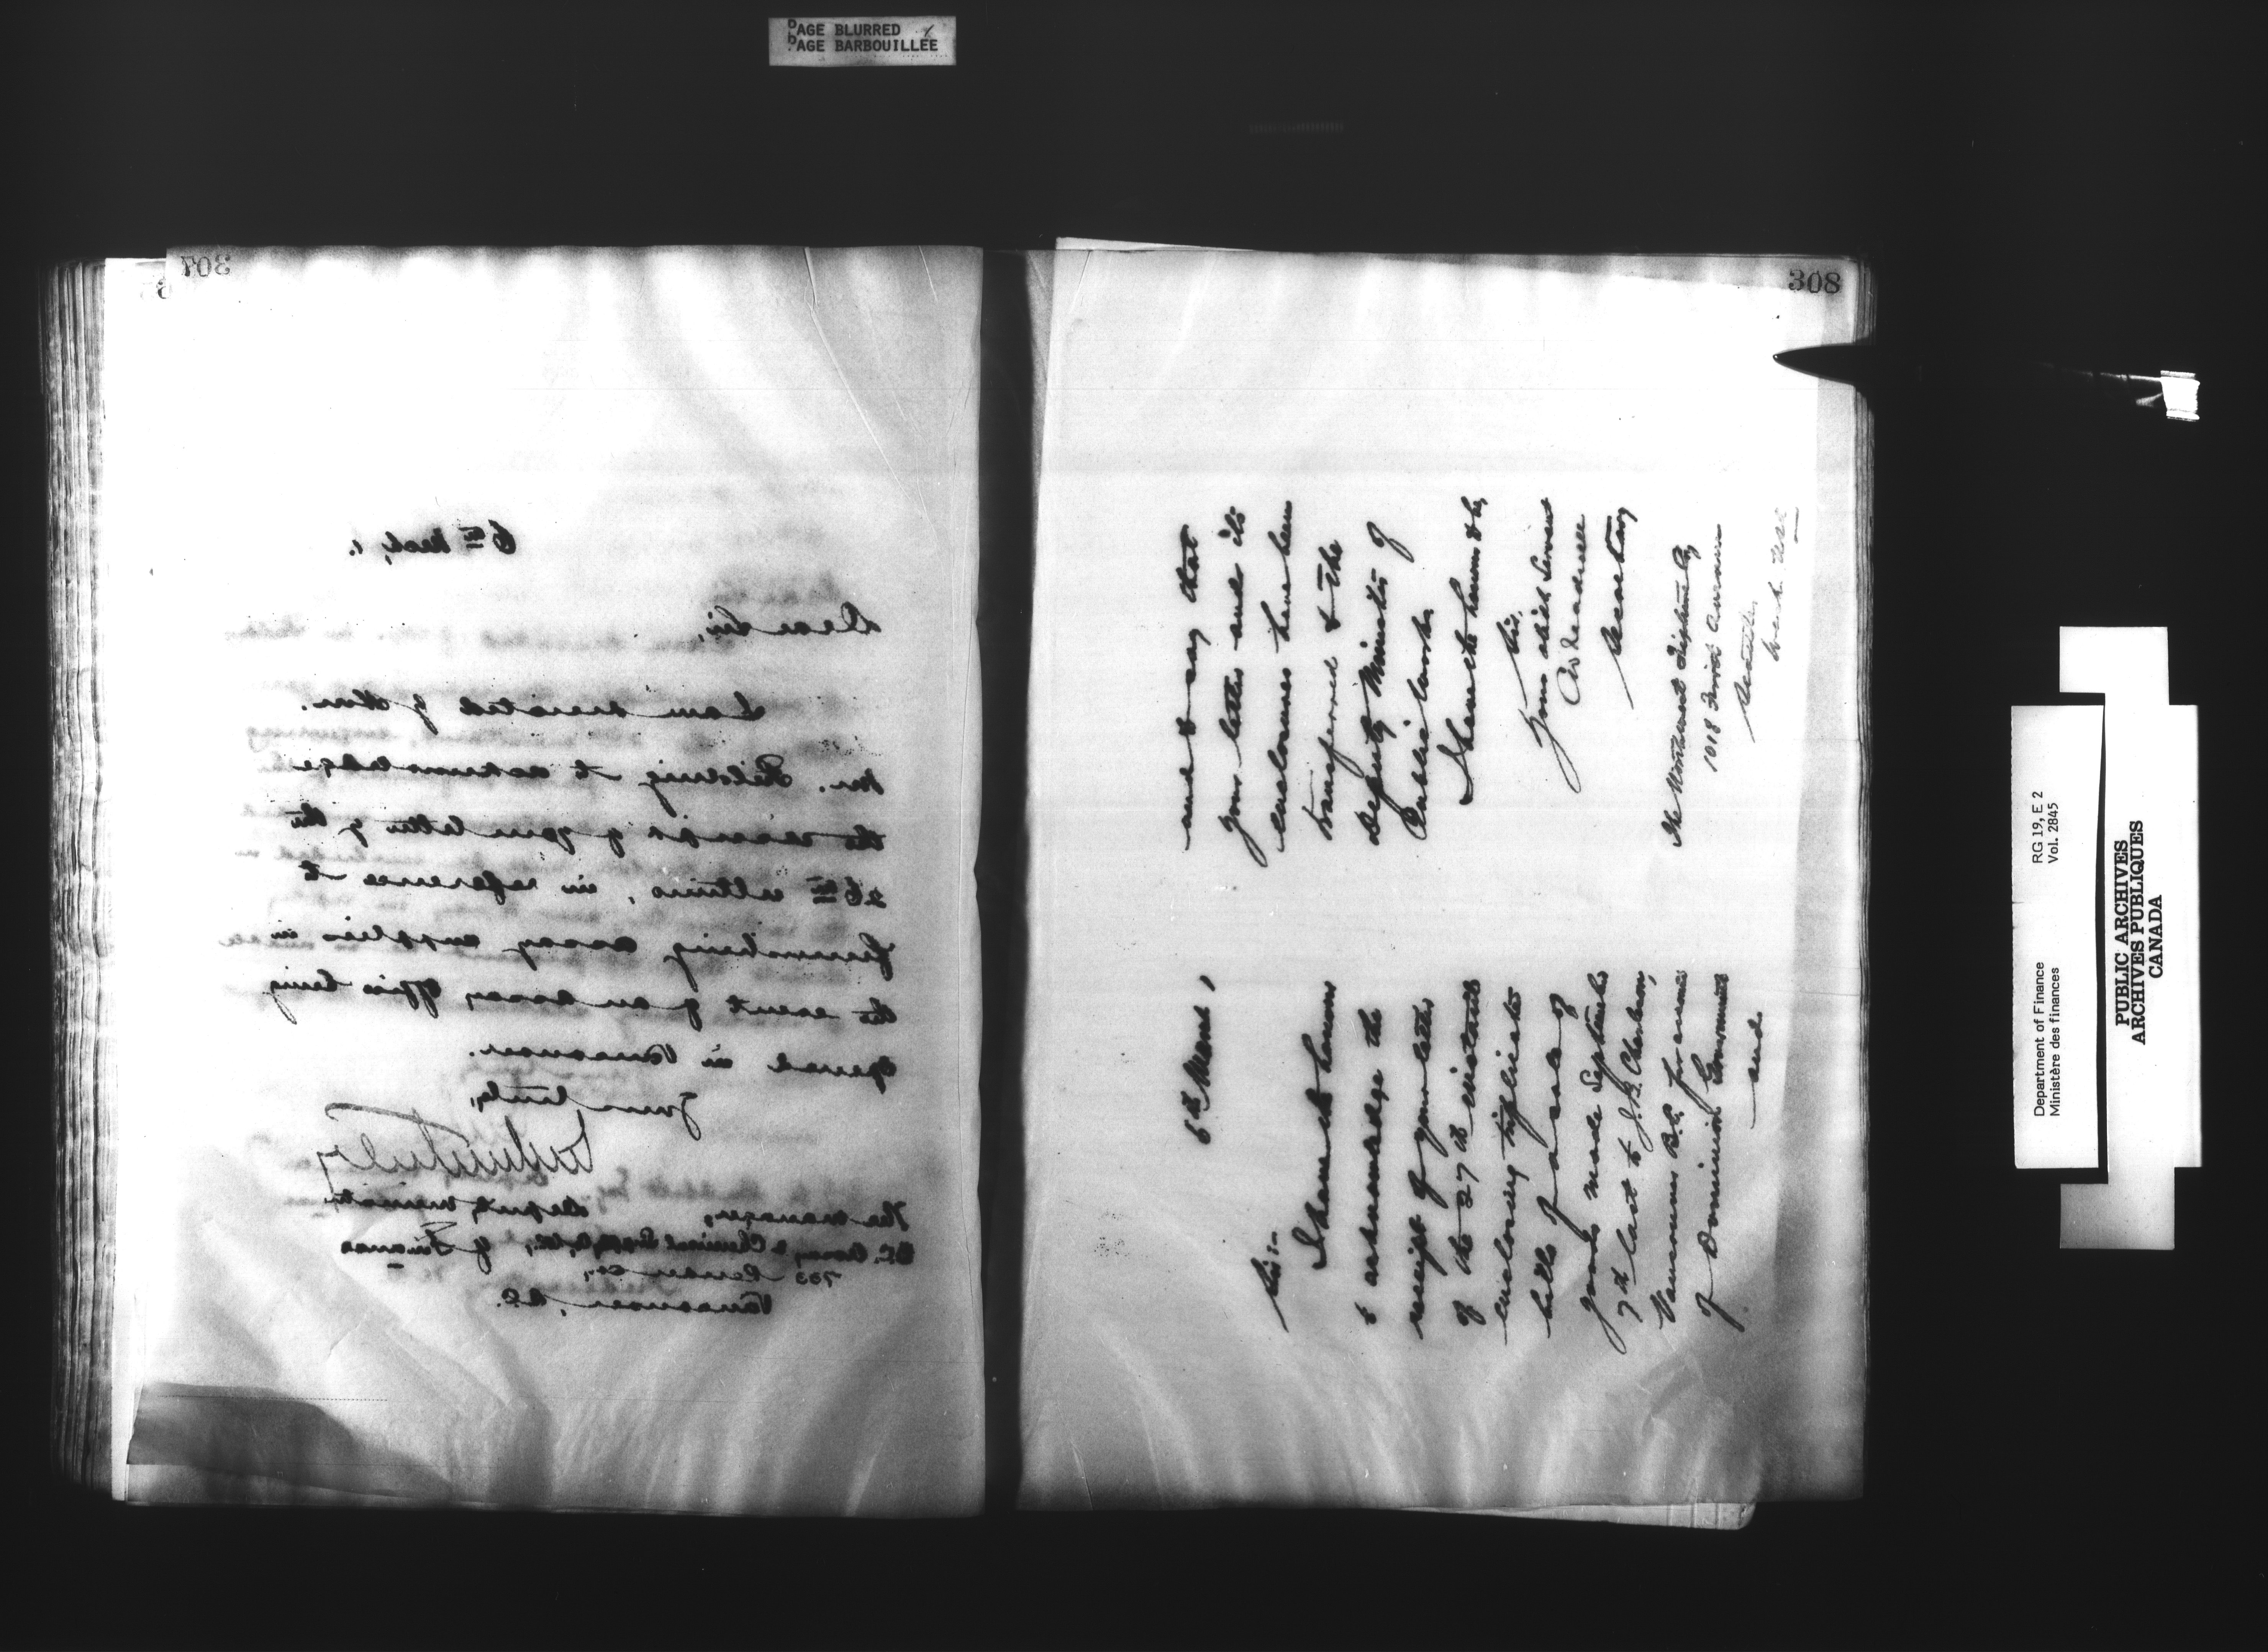 PAGE BLURRED
PAGE BARBOUILLEE
304
6th Mch, 1.
Dear Sir,
I am directed by Hon.
Mr. Fielding to acknowledge
the receipt of your letter of the
26th ultimo, in reference to
furnishing assay supplies in
the event of an assay office being
opened in Vancouver.
Yours truly,
Deputy Minister
of Finance
The Manager,
B.C. Assay & Chemical Supply Co., Ltd.,
Vancouver, B.C.
308
6th March 1
Sir:-
I have the honour
to acknowledge the
receipt of your letter
of the 27th instant
enclosing triplicate
bills of a sale of
goods made September
7th last to J.B. Charleson,
Vancouver B.C. for account
of Dominion Government
and
and to say that
your letter and its
enclosures have been
transferred to the
Deputy Minister of
Public Works.
I have the honour to be,
Sir,
Your obdt Servant
Secretary
1018 First Avenue
Seattle,
Wash. USA
RG 19, E 2
Vol. 2845
Department of Finance
Ministère des finances
PUBLIC ARCHIVES
ARCHIVES PUBLIQUES
CANADA